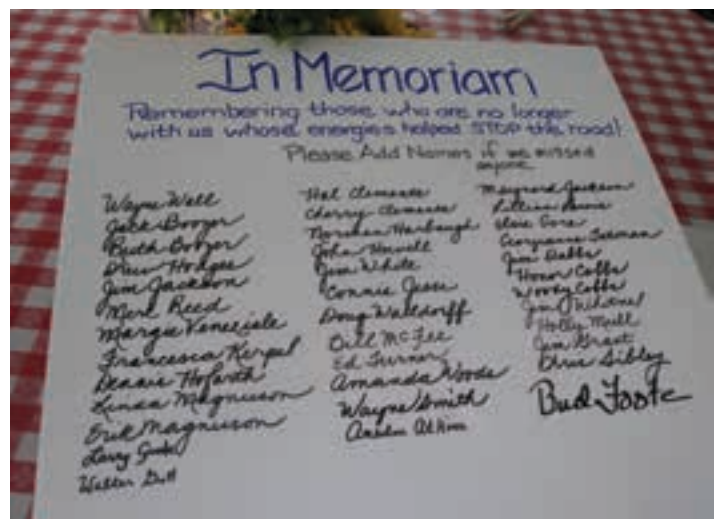 In Memoriam
Remembering those who are no longer
with us whose energies helped STOP the road!
Please Add Names if we missed
anyone
Wayne Wall
Jack Boozer
Ruth Boozer
Drew Hodges
Jim Jackson
Merl Reed
Margie
Francesca Kerpel
Dennis Hofarth
Linda Magnuson
Erik Magnuson
Larry
Walter
Hal Clements
Cherry Clements
Norman Harbaugh
John Howell
Jim White
Connie Jesse
Doug Walldorff
Bill McFee
Ed Turner
Amanda Woods
Wayne Smith
Maynard Jackson
Elsie Gore
Georgianne
Jim Dabbs
Honor Cobbs
Woody Cobbs
Jim
Holly Mull
Jim Grant
Chris Sibley
Bud Foote